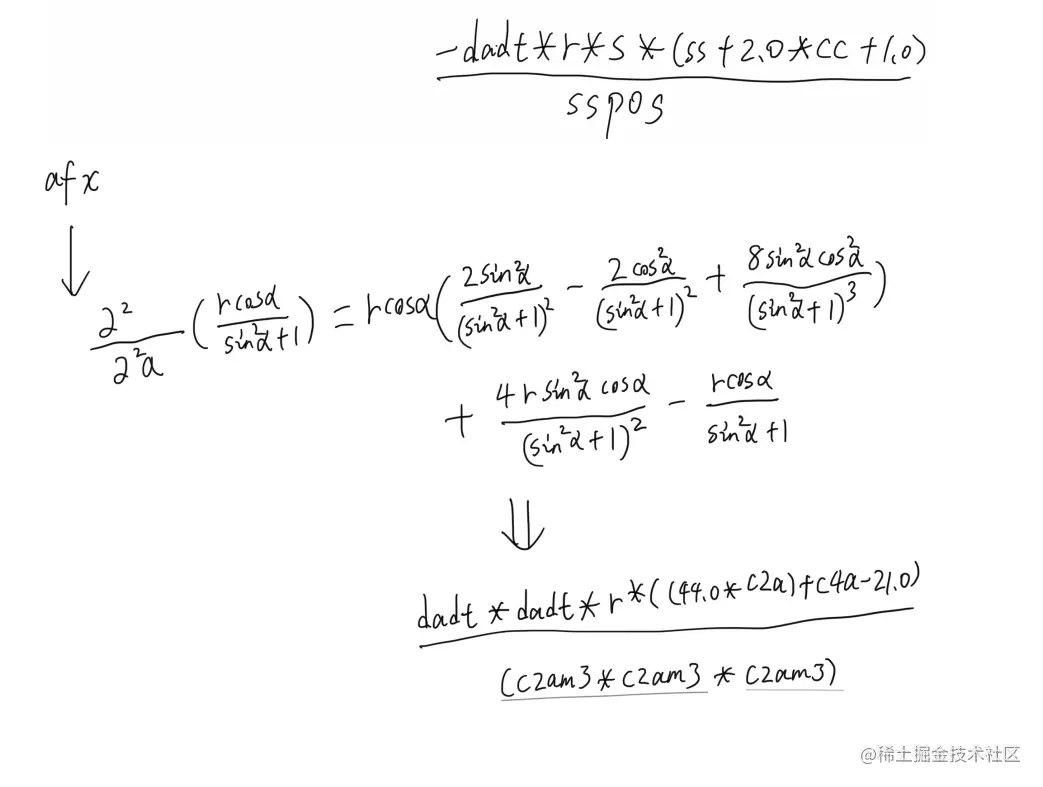 -dadt*r*s*(ss+2.0*cc+1.0)
sspos
afx
↓
2²/2²a (rcosα/sin²α+1) = rcosα(2sin²α/(sin²α+1)² - 2cos²α/(sin²α+1)² + 8sin²αcos²α/(sin²α+1)³)
+ 4rsin²αcosα/(sin²α+1)² - rcosα/sin²α+1
⇓
dadt*dadt*r*((44.0*c2a)+c4a-21.0)
(c2am3*c2am3*c2am3)
@稀土掘金技术社区